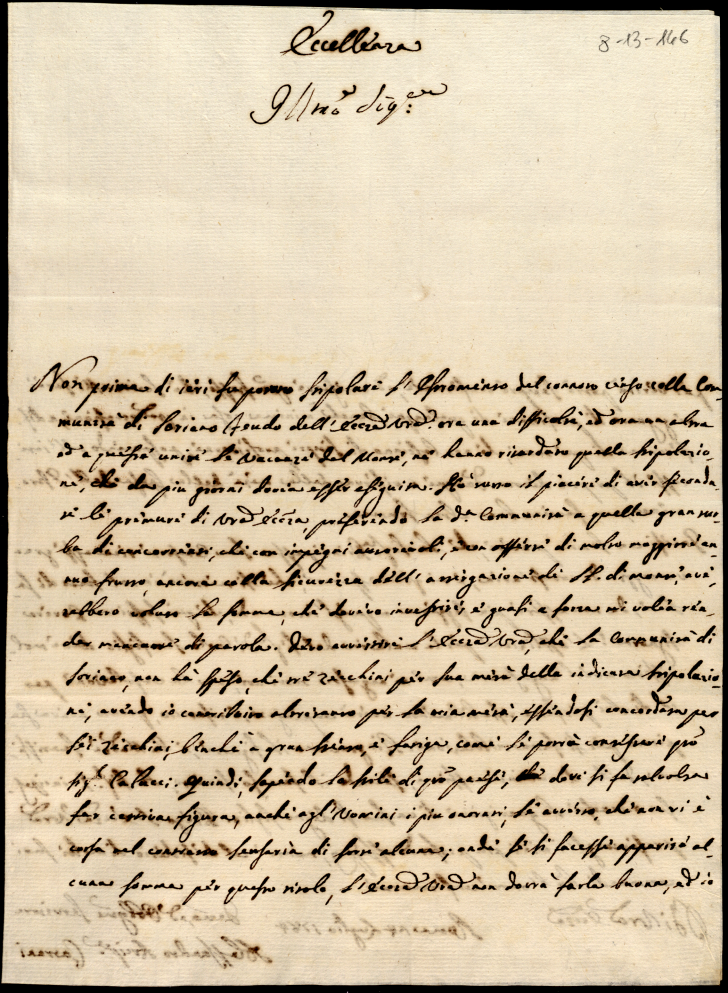 8-13-146
Eccellenza
Illmo Sigre:
Non prima di ieri fu potuto stipolare l'Istromento del connoto censo colla Com-
munità di Soriano feudo dell'Eccza Vra: ora una difficoltà, ed ora un altra
ed a queste unite le vacanze del Monte, ne hanno ritardato quella stipolazio-
ne, che da più giorni dovea esser eseguita. Ho avuto il piacere di aver seconda-
te le premure di Vra Eccza, preferendo la da Communità a quella gran tur-
ba di concorrenti, che con impegni autorevoli, e con offerte di molto maggiore an-
nuo frutto, ancora colla sicurezza dell'assegnazione di LL. di monti, avè-
rebbero voluto la somma, che dovevo investire, e quasi a forza mi volea ren-
der mancante di parola. Devo avvertire l'Eccza Vra, che la Communità di
Soriano, non hà speso, che trè zecchini per sua metà della indicata stipolazio-
ne, avendo io contribuito altretanto per la mia metà, essendosi concordata per
sei zecchini, benchè a gran stento, e fatiga, come le potrà contestare questo
Sigr Calucci. Quindi, sapendo lo stile di questo paese, dove si fa talvolta
far cattiva figura, anche agl'Uomini i più onorati, le avverto, che non vi è
corsa nel contratto senseria di sorte alcuna; onde se si facesse apparire al-
cuna somma per questo titolo, l'Eccza Vra non dovrà farla buona, ed io